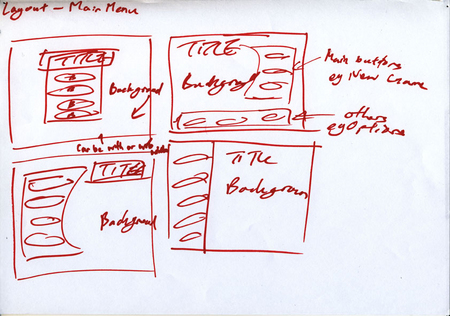 Layout - Main Menu
TITLE
Background
TITLE
Background
Main buttons
eg New Game
others
eg Options
Can be with or
TITLE
Background
TITLE
Background